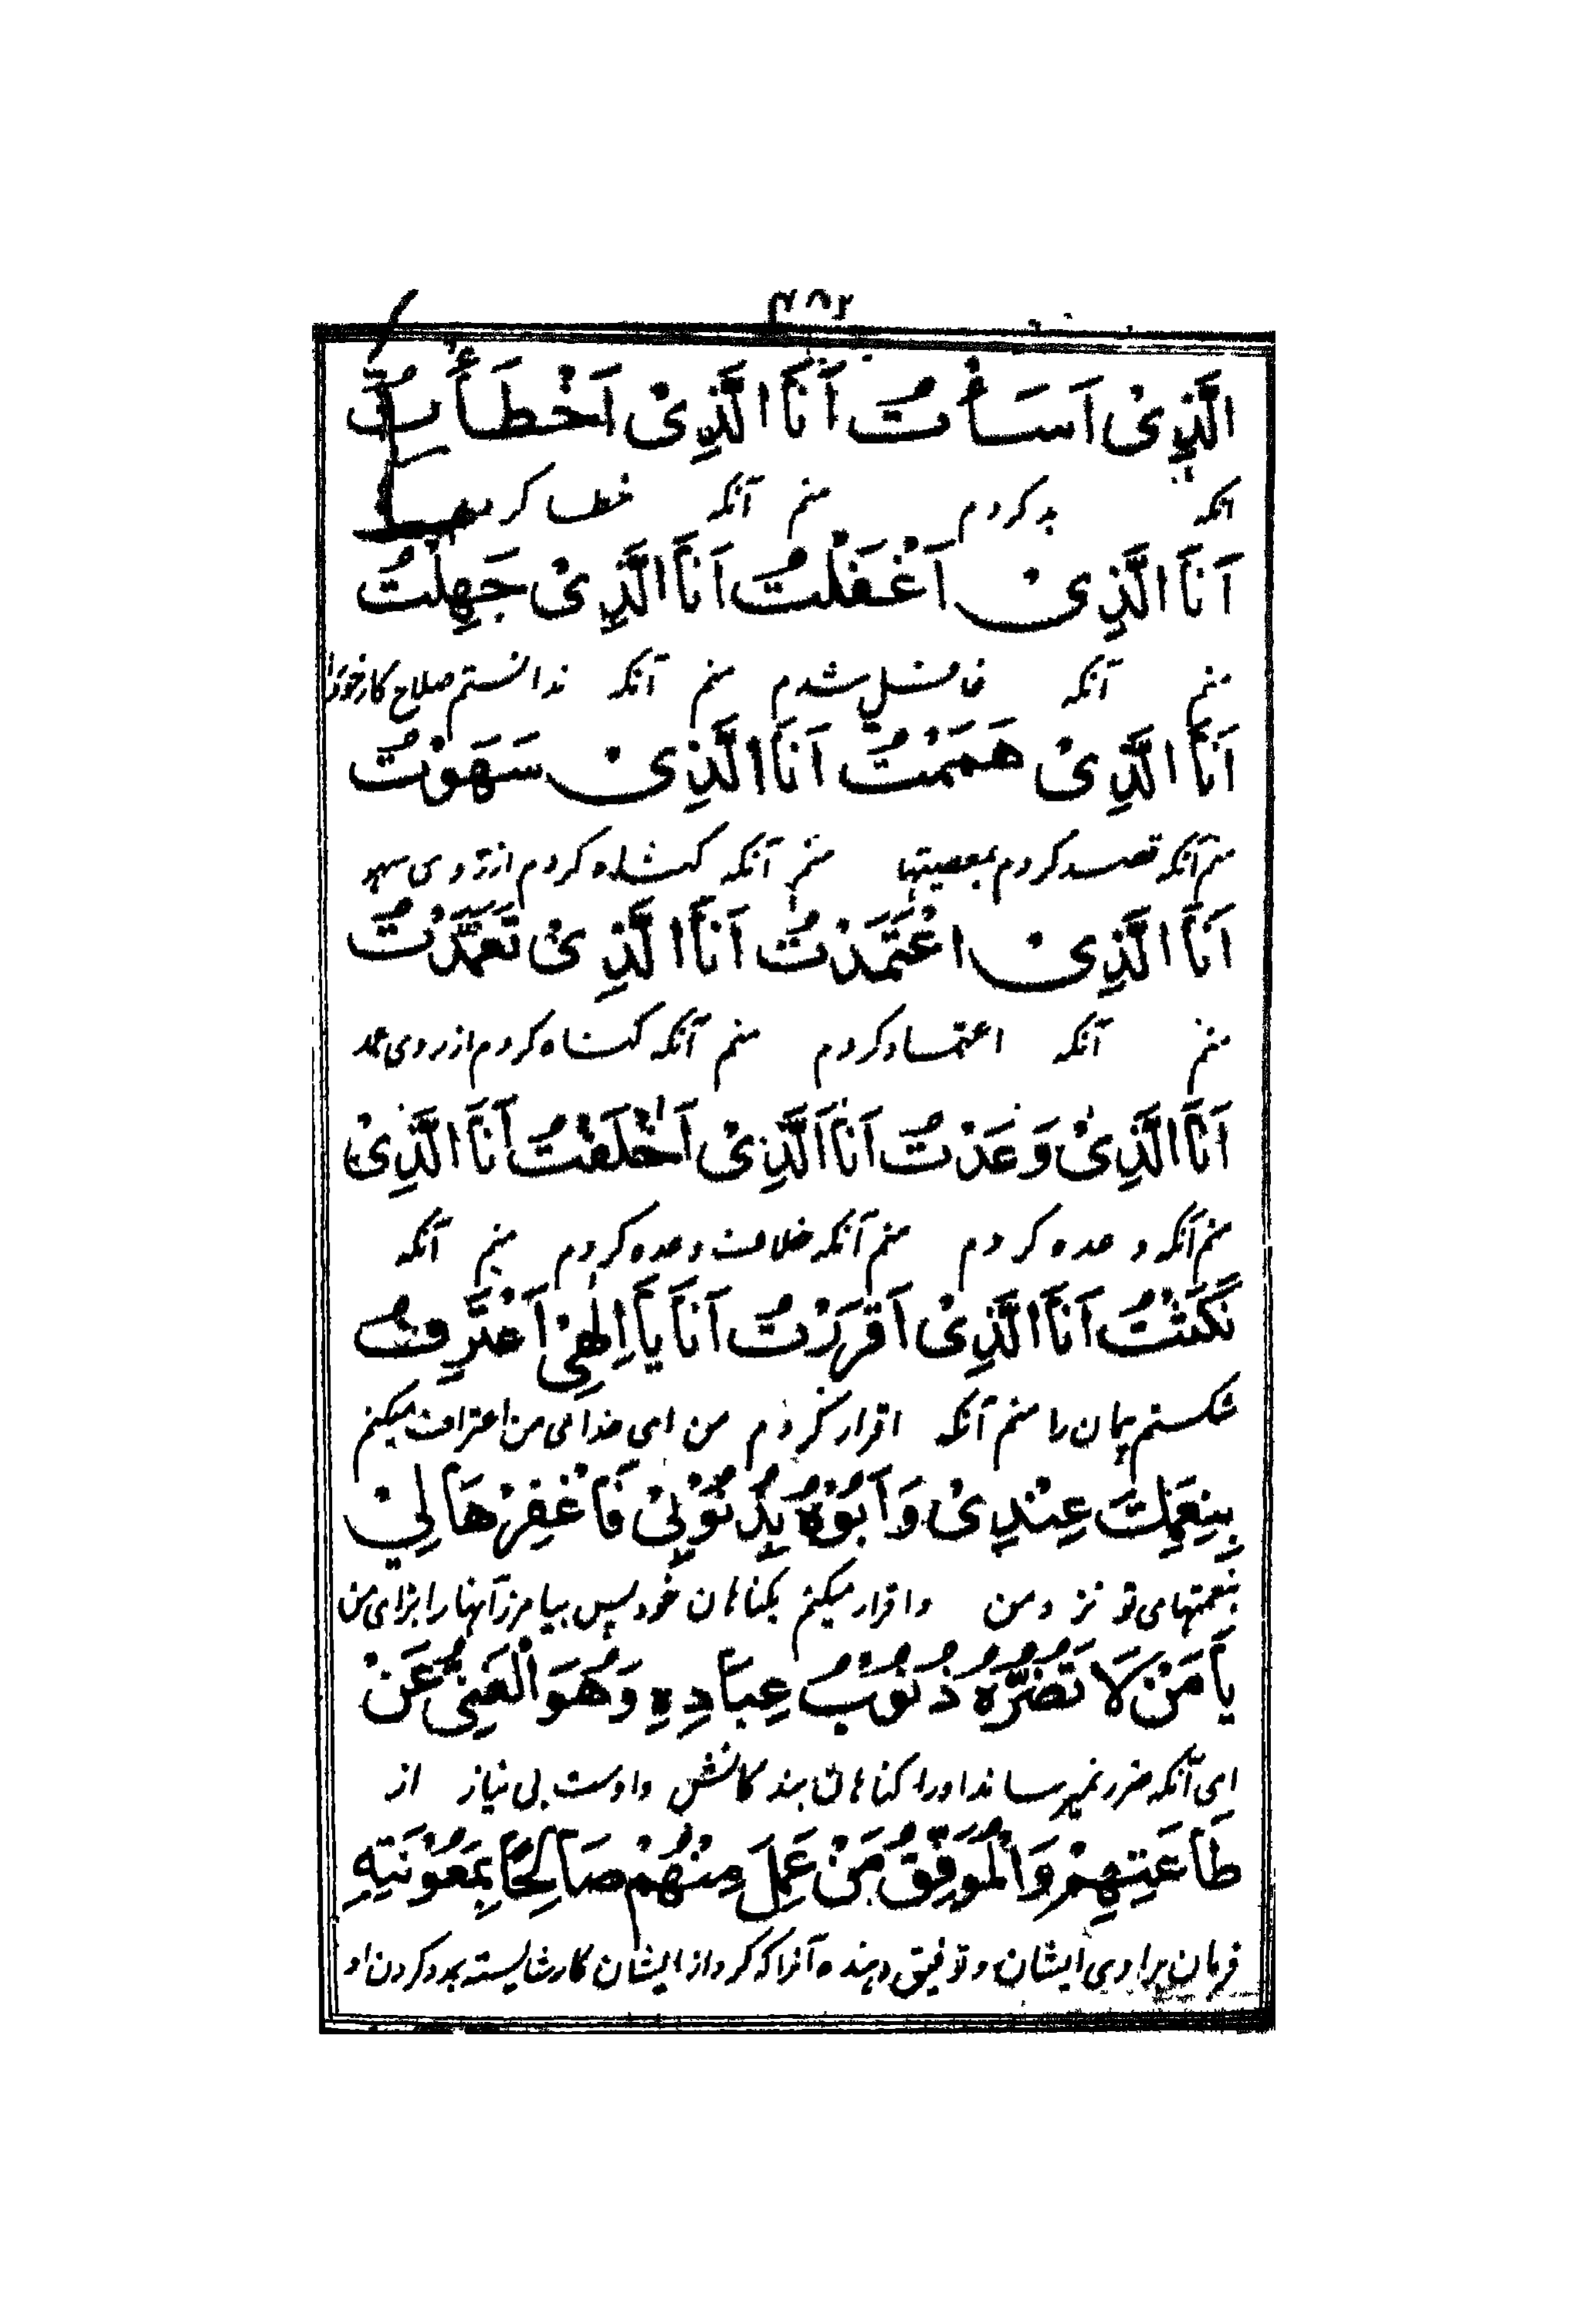 ۴۸۲
الَّذِیْ اَسَأْتُ اَنَا الَّذِیْ اَخْطَأْتُ
آنکه بد کردم منم آنکه خطا کردم
اَنَا الَّذِیْ اَغْفَلْتُ اَنَا الَّذِیْ جَهِلْتُ
منم آنکه غافل شدم منم آنکه ندانستم صلاح کار خود را
اَنَا الَّذِیْ هَمَمْتُ اَنَا الَّذِیْ سَهَوْتُ
منم آنکه قصد کردم بمعصیتها منم آنکه گناه کردم از روی سهو
اَنَا الَّذِیْ اعْتَمَدْتُ اَنَا الَّذِیْ تَعَمَّدْتُ
منم آنکه اعتماد کردم منم آنکه گناه کردم از روی عمد
اَنَا الَّذِیْ وَعَدْتُ اَنَا الَّذِیْ اَخْلَفْتُ اَنَا الَّذِیْ
منم آنکه وعده کردم منم آنکه خلاف وعده کردم منم آنکه
نَکَثْتُ اَنَا الَّذِیْ اَقْرَرْتُ اَنَا یَا اِلٰهِیْ اَعْتَرِفُ
شکستم پیمان را منم آنکه اقرار کردم من ای خدای من اعتراف میکنم
بِنِعَمِکَ عِنْدِیْ وَاَبُوْهُ بِذُنُوْبِیْ فَاغْفِرْهَا لِیْ
بنعمتهای تو نزد من واقرار میکنم بگناهان خود پس بیامرز آنها را برای من
یَا مَنْ لَا تَضُرُّهُ ذُنُوْبُ عِبَادِهِ وَهُوَ الْغَنِیُّ عَنْ
ای آنکه ضرر نمیرساند اورا گناهان بندگانش واوست بی نیاز از
طَاعَتِهِمْ وَالْمُوَفِّقُ مَنْ عَمِلَ مِنْهُمْ صَالِحًا بِمَعُوْنَتِهِ
فرمان برداری ایشان و توفیق دهنده آنرا که کرد از ایشان کار شایسته بمدد کردن او